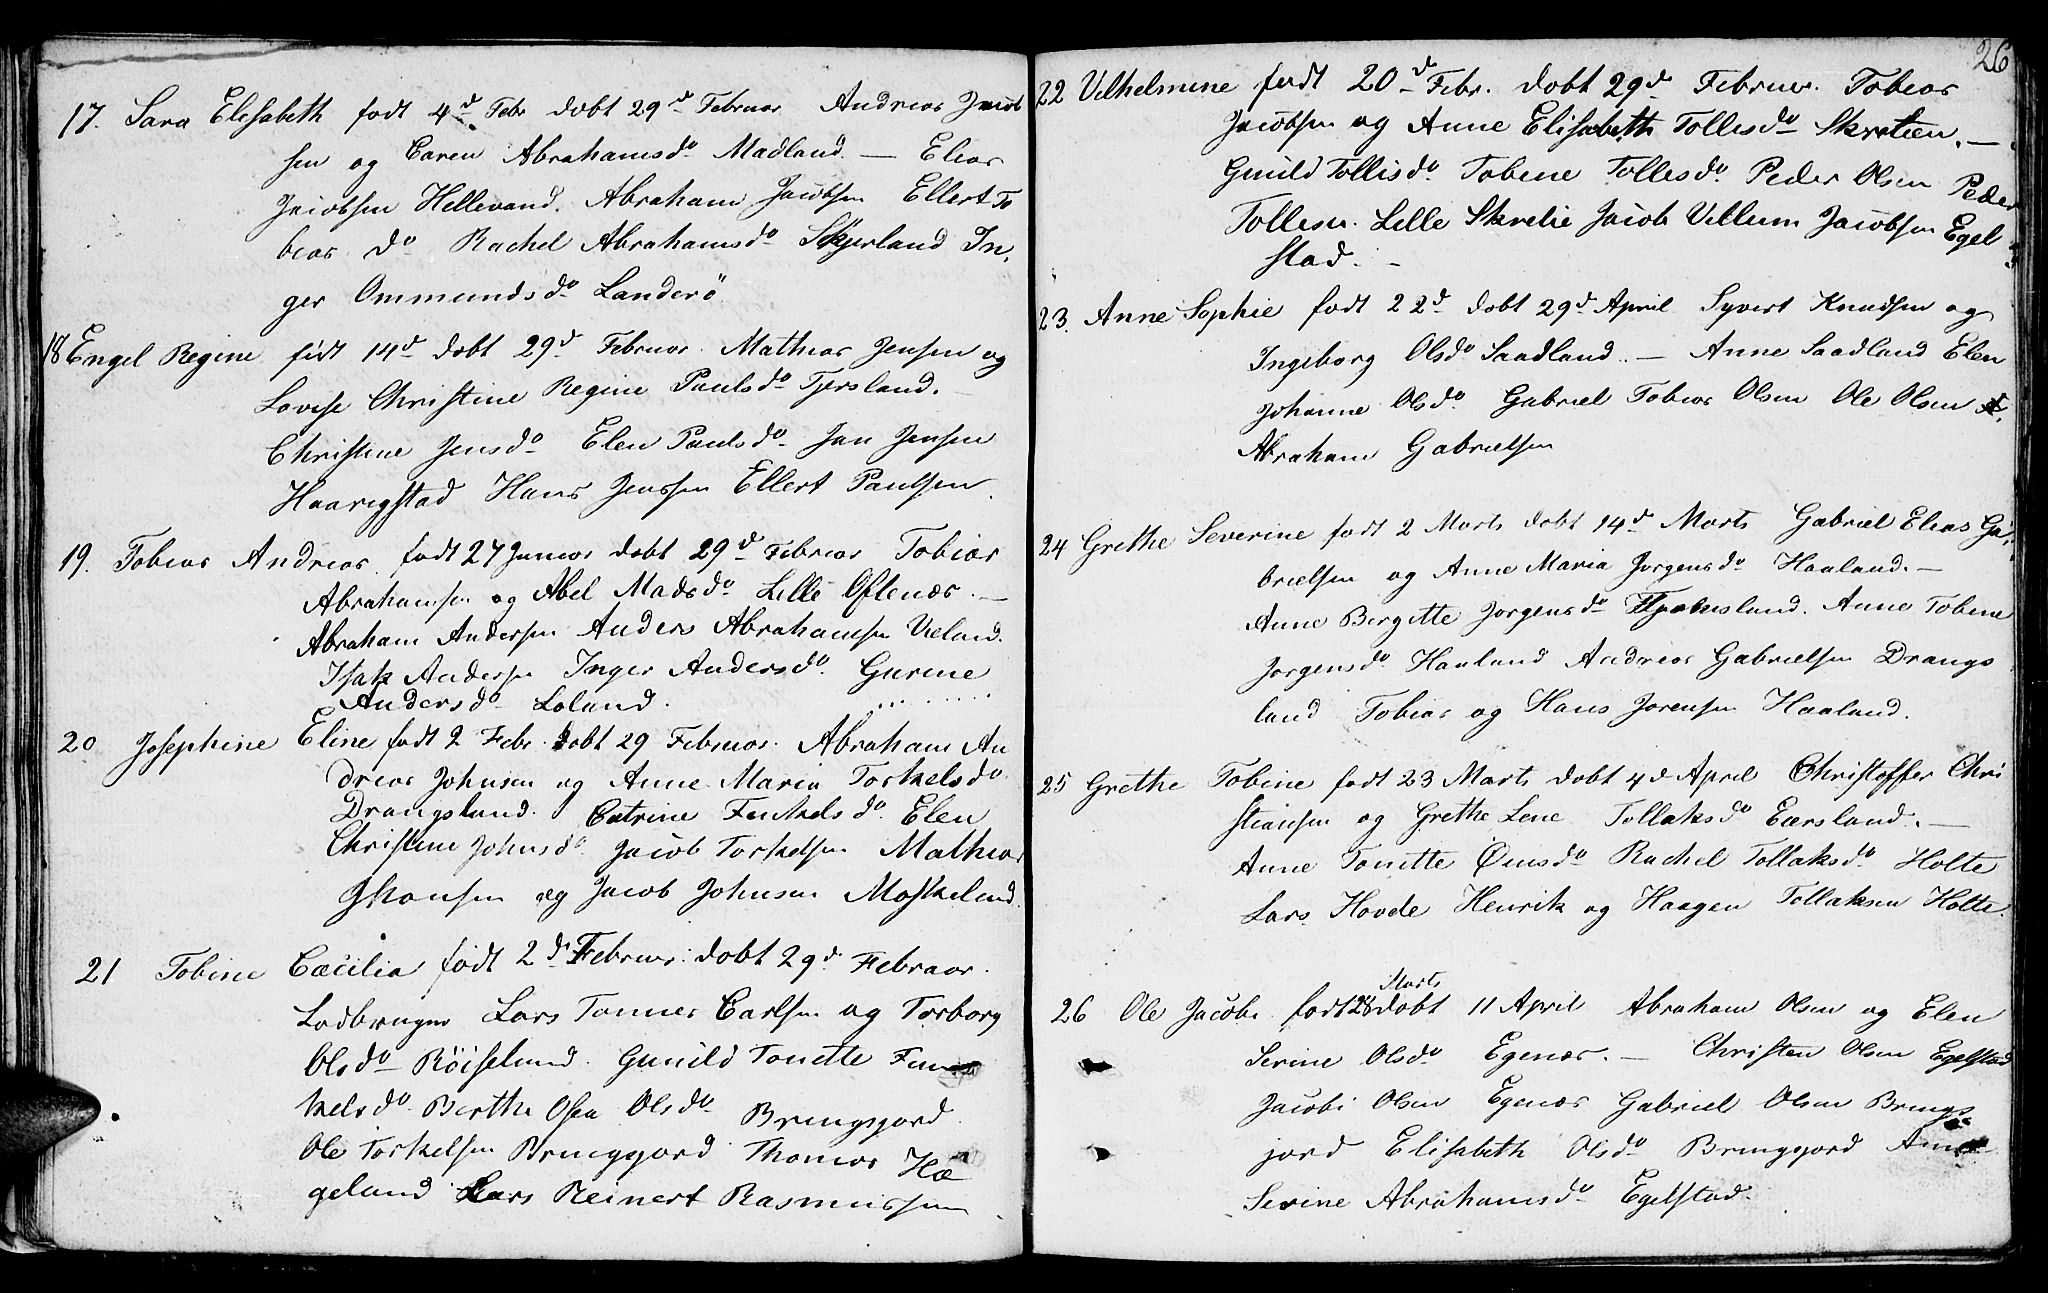 17. Sara Elisabeth født 4d Febr døbt 29d Februar Andreas Jacob
sen og Caren Abrahamsdo Madland. — Elias
Jacobsen Hellevand. Abraham Jacobsen Ellert To
bias do Rachel Abrahamsdo Skjerland In,
ger Ommundsdo Landerö
18 Engel Regine født 14d døbt 29d Februar. Mathias Jensen og
Lovise Christine Regine Paulsdo Tjersland. —
Christine Jensdo Elen Paulsdo Jan Jensen
Haarigstad Hans Jenssen Ellert Paulsen.
19. Tobias Andreas født 27 Januar døbt 29d Februar Tobias
Abrahamsen og Abel Madsdo Lille Oftenæs. —
Abraham Andersen Anders Abrahamsen Vieland.
Isak Andersen Inger Andersdo Gurine
Andersdo Loland.
20 Josephine Eline født 2 Febr. døbt 29 Februar. Abraham An
dreas Johnsen og Anne Maria Torkelsdo
Drangsland. Catrine Fenkelsdo Elen
Christine Johnsdo Jacob Torkelsen Mathias
Johansen og Jacob Johnsen Moskeland.
21 Tobine Cæcilia født 2d Februar: døbt 29d Februar.
Ladbruger Lars Tønnes Carlsen og Torborg
Olsdo Röiseland. Gunild Tonette Fen
kelsdo Berthe Osea Olsdo Bringsjord.
Ole Torkelsen Bringsjord Thomas Hæ
geland Lars Reinert Rasmussen
26
22 Vilhelmine født 20d Febr. døbt 29d Februar. Tobias
Jacobsen og Anne Elisabeth Tollisdo Skretien. —
Gunild Tollisdo Tobine Tollisdo Peder Olsen Peder
Tollisen Lille Skretie Jacob Villum Jacobsen Egel
stad. —
23. Anne Sophie født 22d døbt 29d April Syvert Knudsen og
Ingeborg Olsdo Saadland. — Anne Saadland Elen
Johanne Olsdo Gabriel Tobias Olsen Ole Olsen
Abraham Gabrielsen
24 Grethe Severine født 2 Marts døbt 14d Marts Gabriel Elias Ga,
brielsen og Anne Maria Jørgensdo Haaland. —
Anne Birgitte Jørgensdo Tjomsland. Anne Tobine
Jørgensdo Haaland Andreas Gabrielsen Drangs
land Tobias og Hans Jørensen Haaland.
25 Grethe Tobine født 23 Marts døbt 4d April Christoffer Chri
stiansen og Grethe Lene Tollaksdo Eersland. —
Anne Tonette Omsdo Rachel Tollaksdo Holte
Lars Hovde Henrik og Haagen Tollaksen Holte.
Marts
26 Ole Jacobi født 28 døbt 11 April Abraham Olsen og Elen
Serine Olsdo Egenæs. — Christen Olsen Egelstad
Jacobi Olsen Egenæs Gabriel Olsen Brings
jord Elisabeth Olsdo Bringsjord Anne
Serine Abrahamsdo Egelstad.